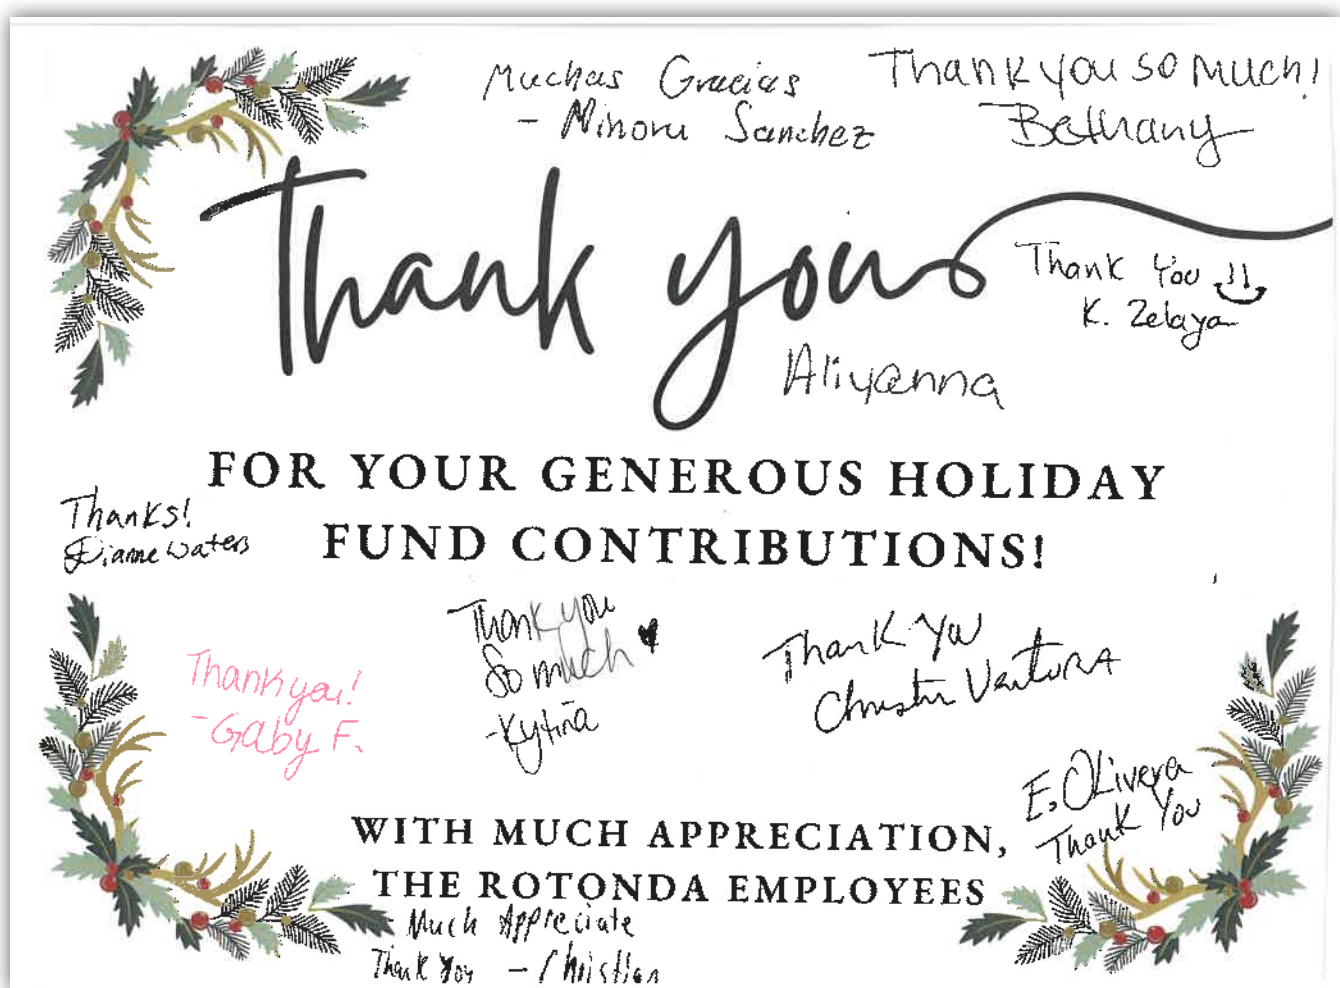 Muchas Gracias
- Minoru Sanchez
Thank you so much!
Bethany
Thank you
Thank You
K. Zelaya
Aliyanna
FOR YOUR GENEROUS HOLIDAY
FUND CONTRIBUTIONS!
Thanks!
Dianne Waters
Thank you
So much
-Kytina
Thank You
Ventura
Thank you!
-Gaby F.
E. Olivera
Thank You
WITH MUCH APPRECIATION,
THE ROTONDA EMPLOYEES
- Much Appreciate
Thank You - Christian